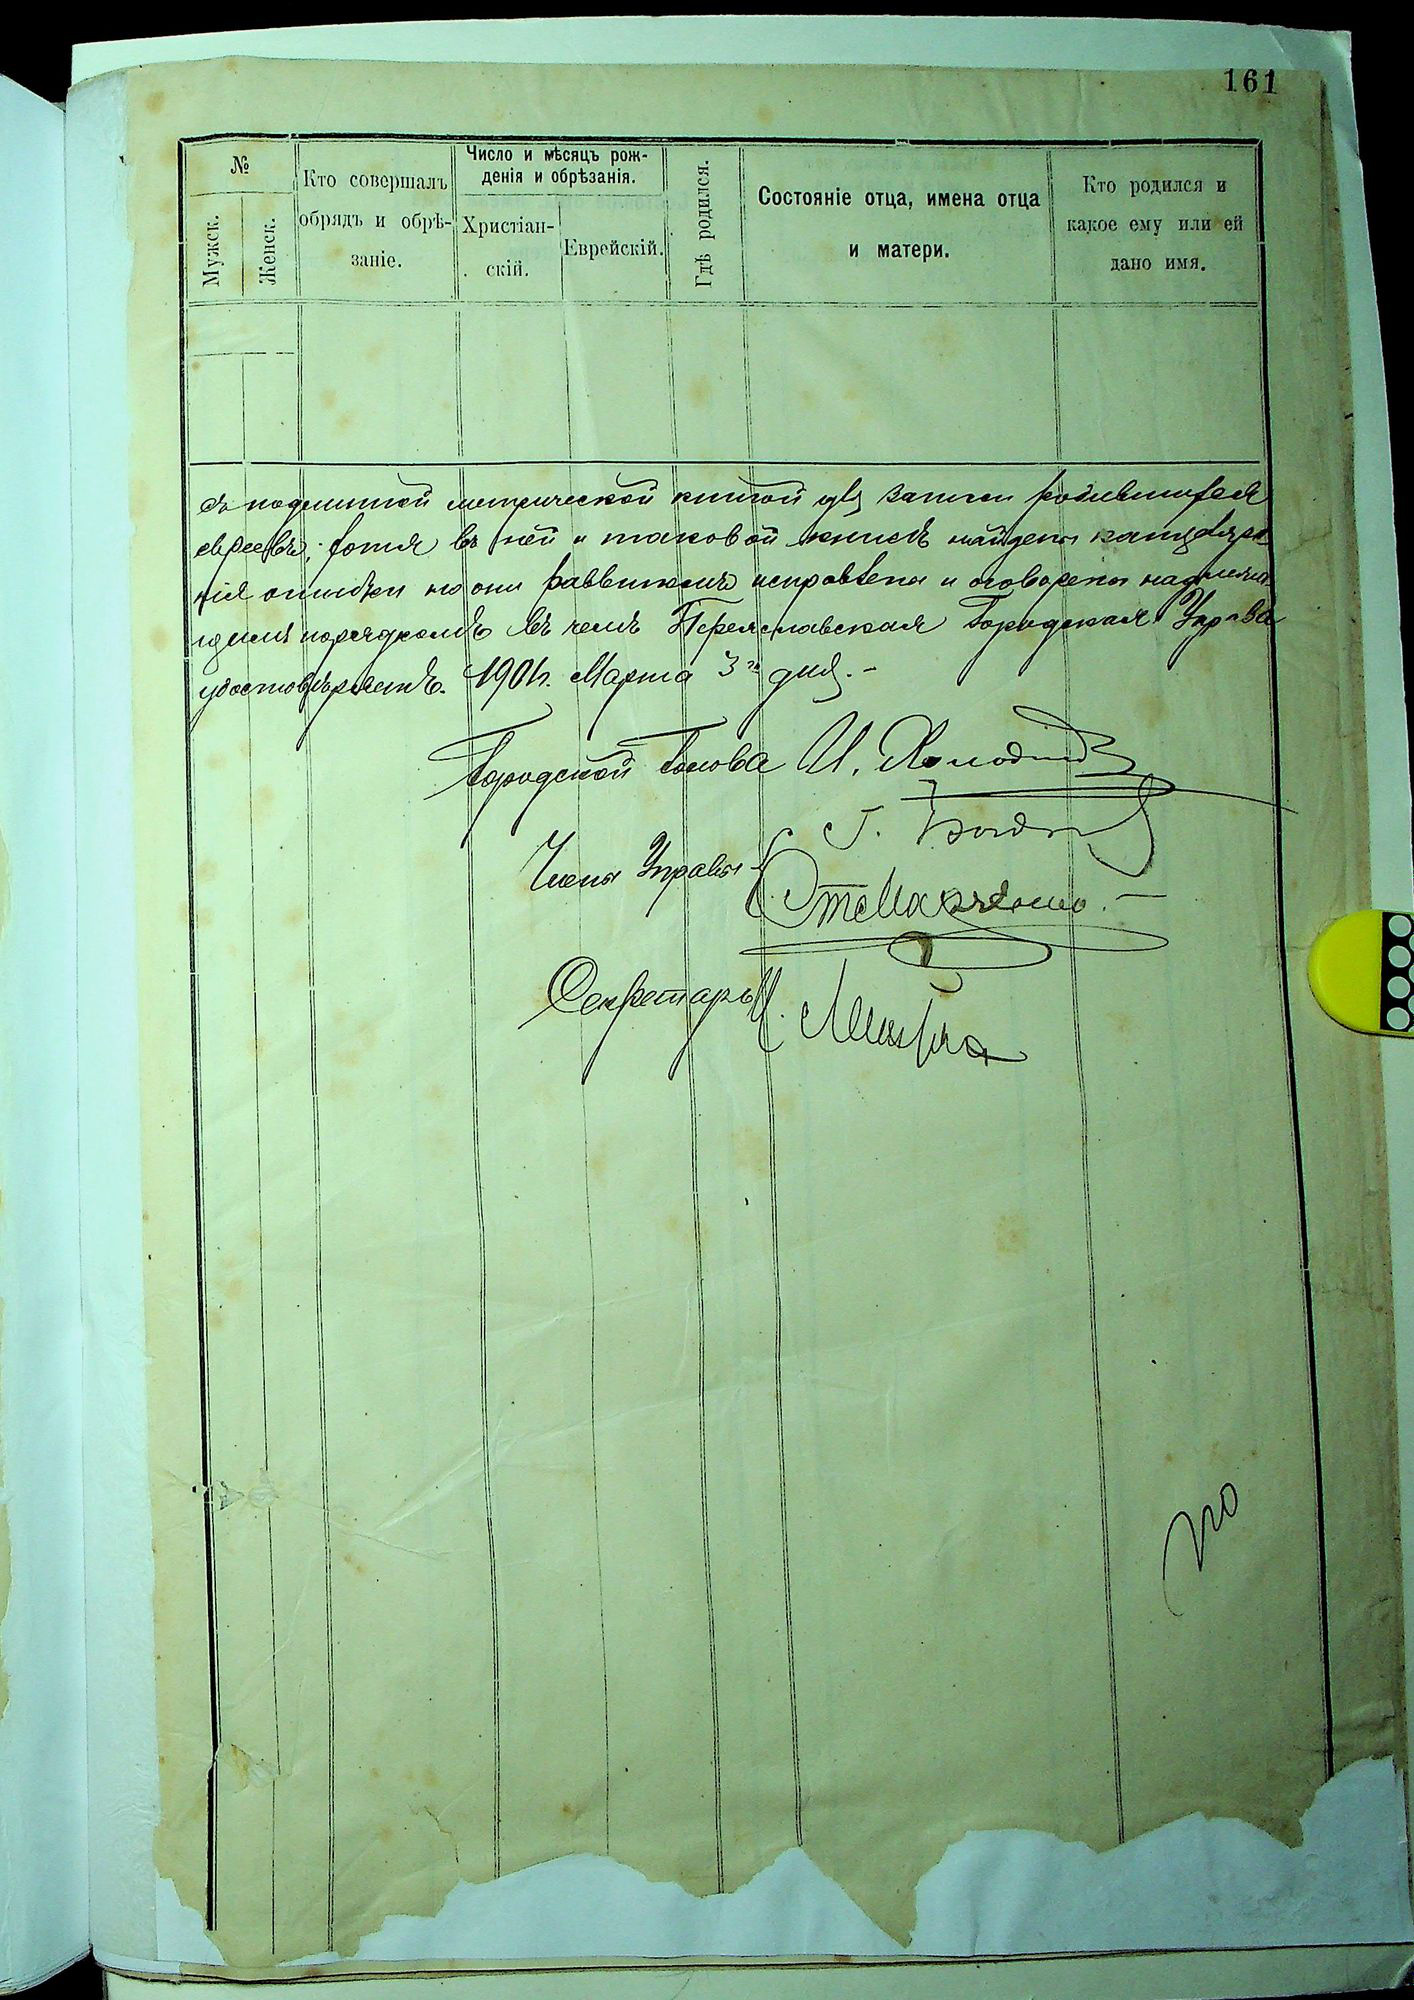 161
№
Мужск.
Женск.
Кто совершалъ
обрядъ и обрѣ-
заніе.
Число и мѣсяцъ рож-
денія и обрѣзанія.
Христіан-
скій.
Еврейскій.
Гдѣ родился.
Состояніе отца, имена отца
и матери.
Кто родился и
какое ему или ей
дано имя.
съ подлинной метрической книгой для записи родившихся
евреевъ, хотя въ ней и таковой книгѣ найдены канцелярс-
кія ошибки но они раввиномъ исправлены и оговорены надлежа-
щимъ порядкомъ въ чемъ Переяславская Городская Управа
удостовѣряетъ. 1901 г. Марта 3го дня.-
Городской Голова И.
Члены Управы Г.
Секретарь